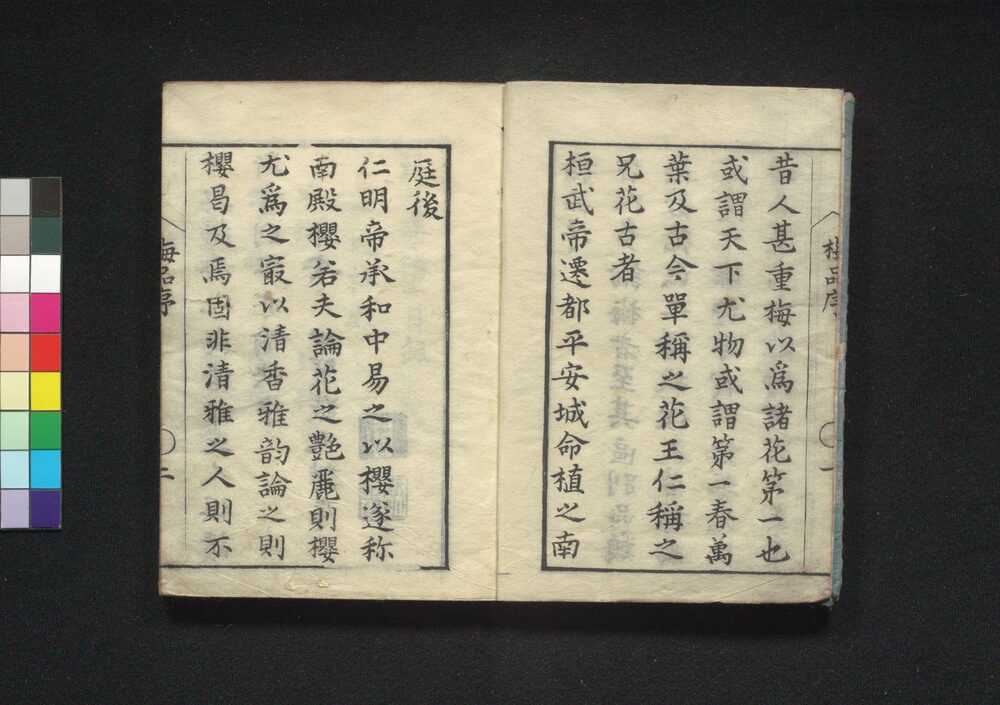 昔人甚重梅以爲諸花第一也
或謂天下尤物或謂第一春萬
葉及古今單稱之花王仁稱之
兄花古者
桓武帝遷都平安城命植之南
梅品序
一
庭後
仁明帝承和中易之以櫻遂称
南殿櫻若夫論花之艷麗則櫻
尤爲之㝡以清香雅韵論之則
櫻曷及焉固非清雅之人則不
梅品序
二